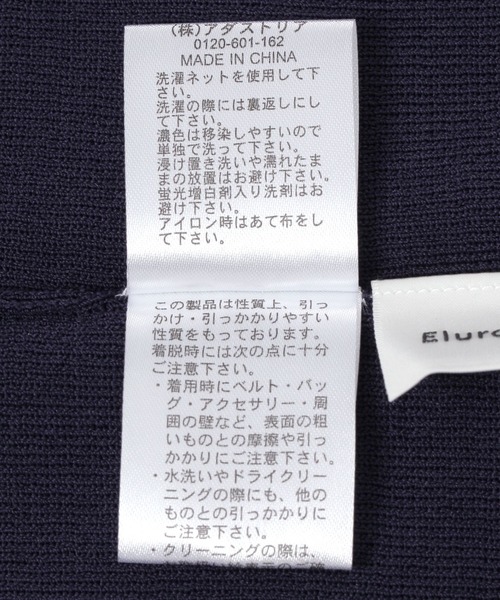 (株)アダストリア
0120-601-162
MADE IN CHINA
洗濯ネットを使用して下
さい。
洗濯の際には裏返しにし
て下さい。
濃色は移染しやすいので
単独で洗って下さい。
浸け置き洗いや濡れたま
まの放置はお避け下さい。
蛍光増白剤入り洗剤はお
避け下さい。
アイロン時はあて布をし
て下さい。
この製品は性質上、引っ
かけ・引っかかりやすい
性質をもっております。
着脱時には次の点に十分
ご注意下さい。
・着用時にベルト・バッ
グ・アクセサリー・周
囲の壁など、表面の粗
いものとの摩擦や引っ
かかりにご注意下さい。
・水洗いやドライクリー
ニングの際にも、他の
ものとの引っかかりに
ご注意下さい。
・クリーニングの際は、